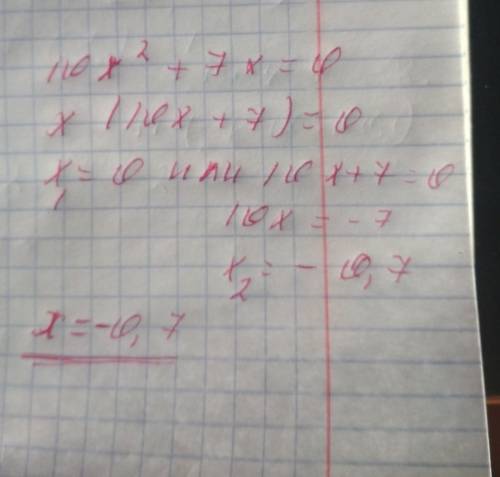 10x² + 7x = 0
x (10x + 7) = 0
x₁ = 0 или 10x + 7 = 0
10x = - 7
x₂ = - 0,7
x = -0,7